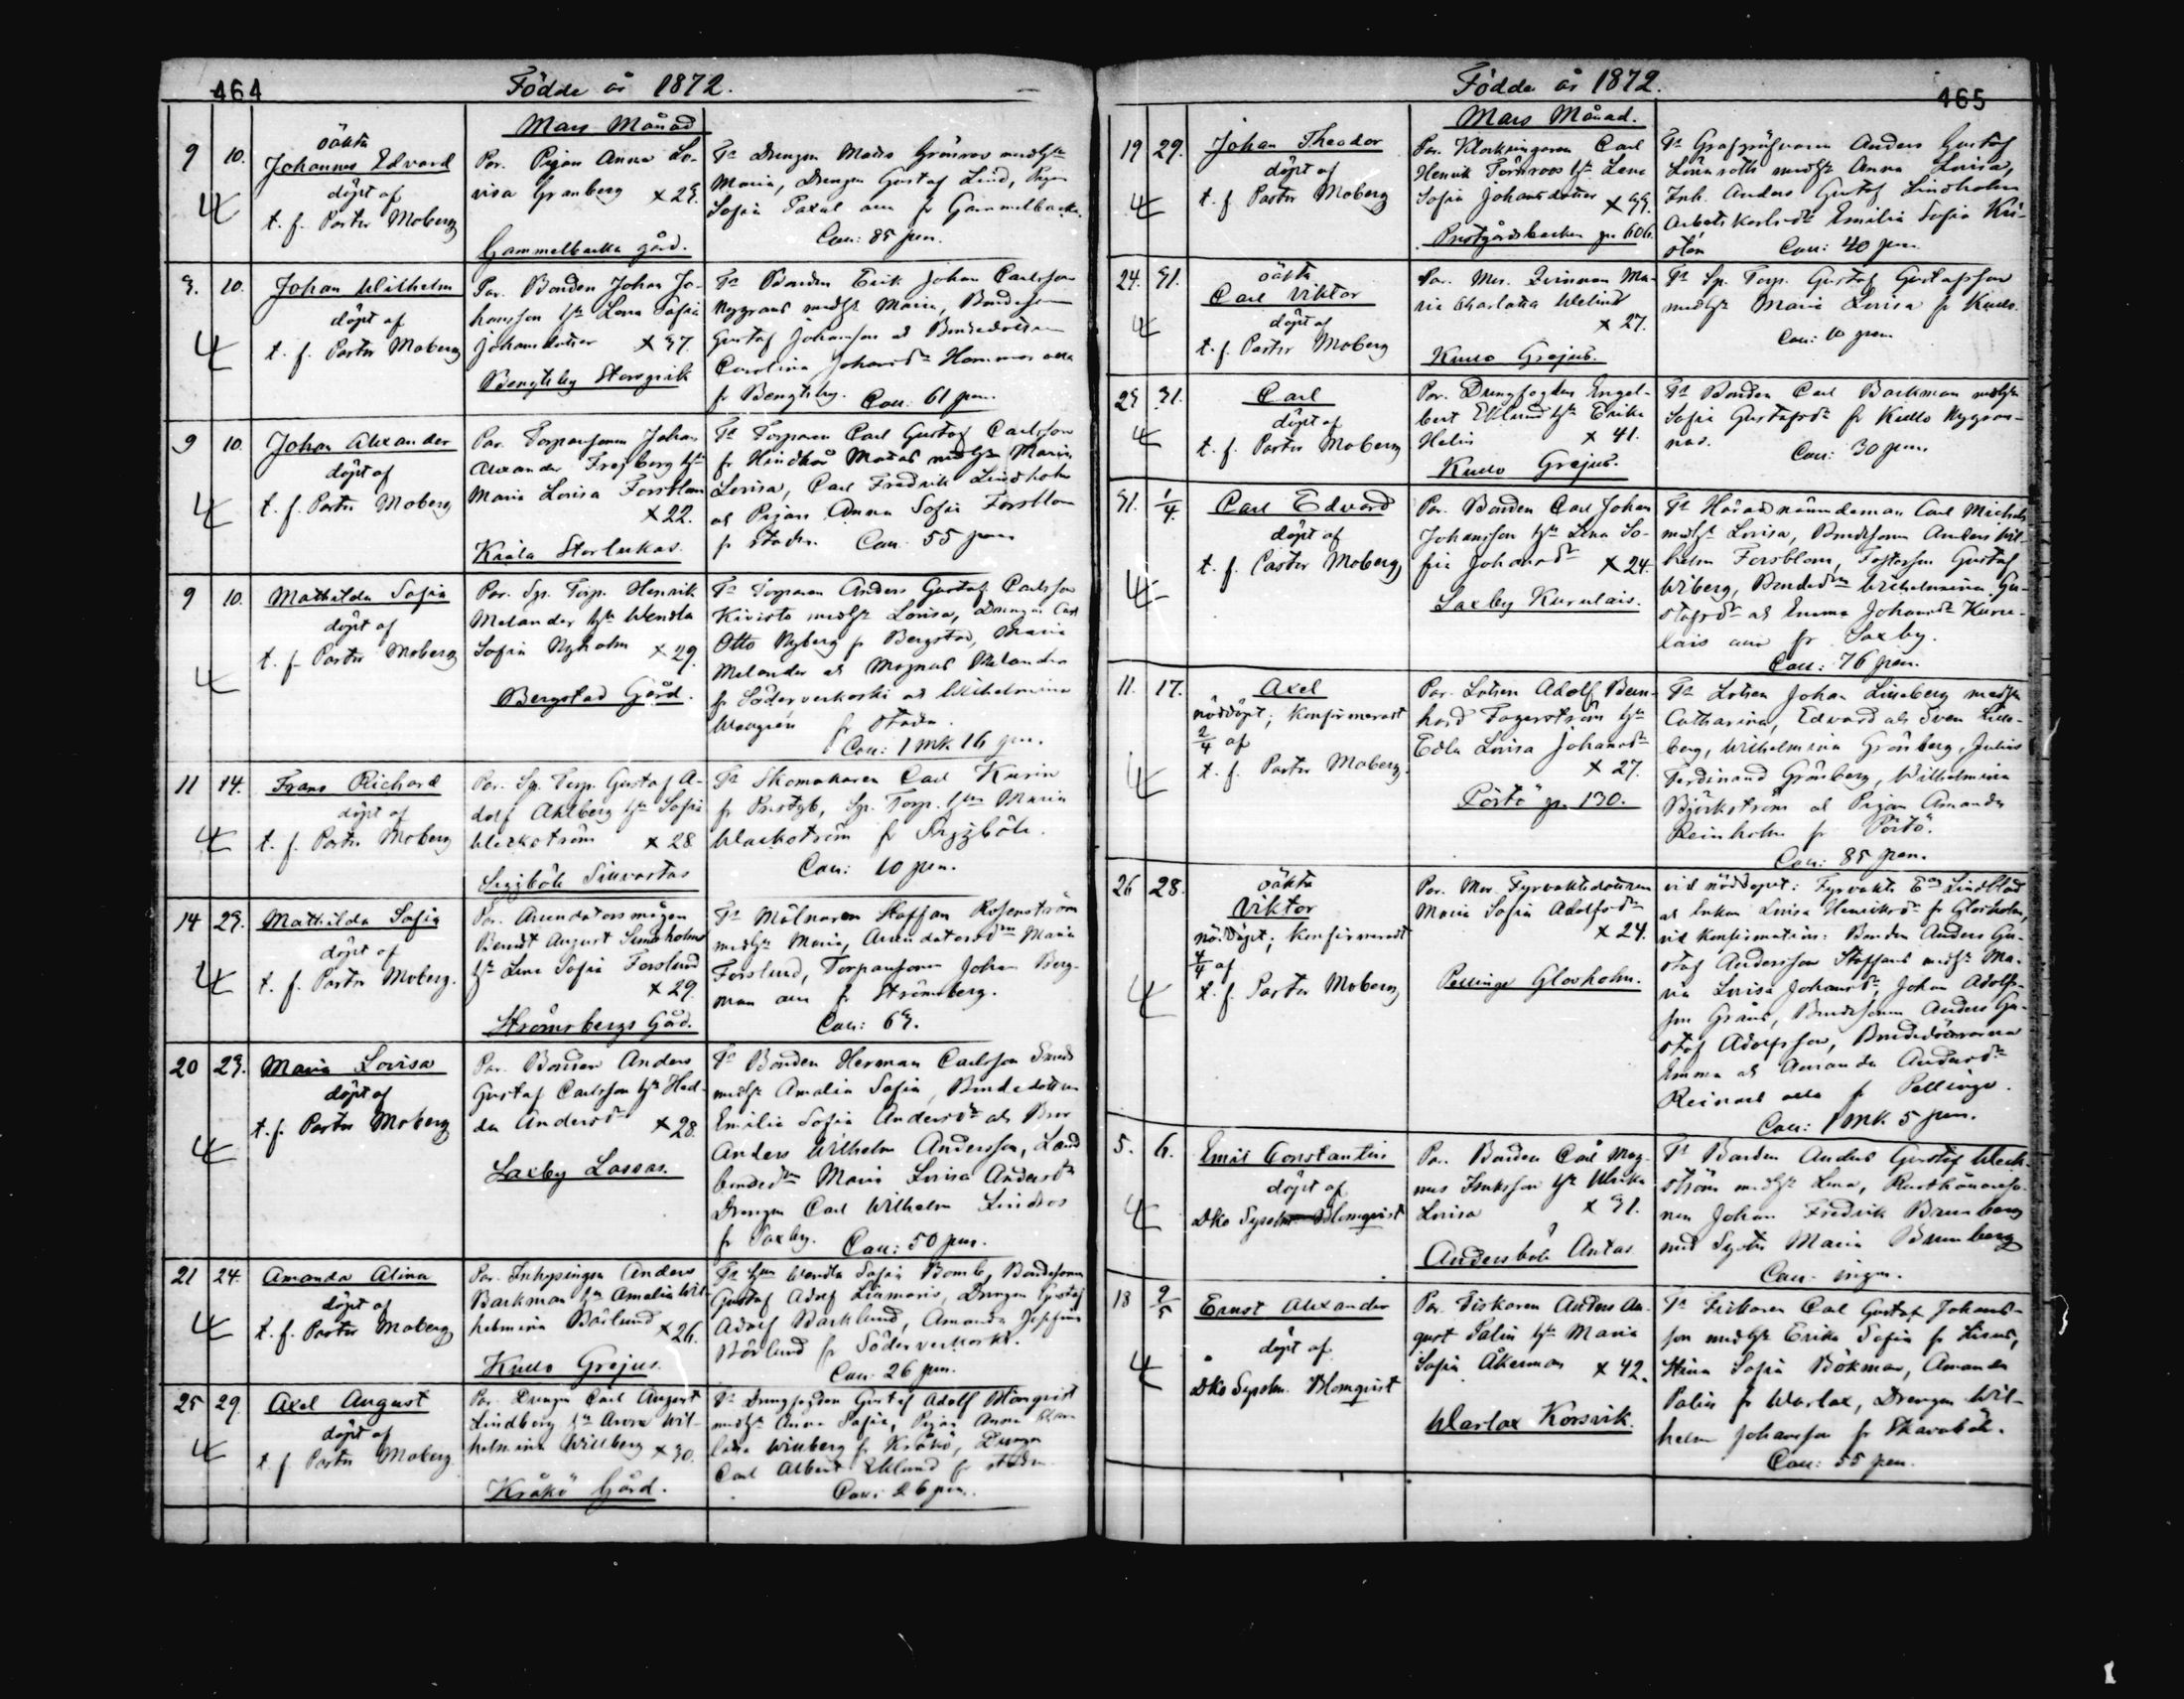 464
Födde år 1872.
Mars Månad
9 10.
oäkta
Johannes Edvard
döpt af
t. f. Pastor Moberg
Par. Pigan Anna Lo-
visa Granberg × 29.
Gammelbacka gård.
Fa Drengen Mats Grönroos medhu
Maria, Drengen Gustaf Lind, Pigan
Sofia
fr Gammelbacka.
Coll: 85 pen.
9. 10.
Johan Wilhelm
döpt af
t. f. Pastor Moberg
Par. Bonden Johan Jo-
hansson hu Lena Sofia
Johansdotter × 37.
Bengtsby Storgrik
Fa Bonden Erik Johan Carlsson
Nygrans medhu Maria, Bondesonen
Gustaf Johansson ock Bondedottren
Carolina Johansdr Hommas alla
fr Bengtsby. Coll: 61 pen.
9 10.
Johan Alexander
döpt af
t. f. Pastor Moberg
Par. Torparsonen Johan
Alexander Frejberg hu
Maria Lovisa Forsblom
× 22.
Kråla Storlukas.
Fa Torparen Carl Gustaf Carlsson
fr Hindhår Matas medhu Maria
Lovisa, Carl Fredrik Lindholm
ock Pigan Anna Sofia Forsblom
fr staden. Coll: 55 pen
9 10.
Mathilda Sofia
döpt af
t. f. Pastor Moberg
Par. Sp. Torp. Henrik
Melander hu Wendla
Sofia Nyholm × 29.
Bergstad Gård.
Fa Torparen Anders Gustaf Carlsson
Kivistö medhu Lovisa, Drengen Carl
Otto Nyberg fr Bergstad, Maria
Melander ock Magnus Melander
fr Söderverkoski ock Wilhelmina
fr staden.
Coll: 1 mk 16 pen.
11 14.
Frans Richard
döpt af
t. f. Pastor Moberg
Par. Sp. Torp. Gustaf A-
dolf Ahlberg hu Sofia
Weckström × 28
Siggböle Sillvastas
Fa Skomakaren Carl Kurin
fr Prestgb, Sp. Torp. hun Maria
Weckström fr Siggböle.
Coll: 10 pen.
14 23.
Mathilda Sofia
döpt af
t. f. Pastor Moberg.
Par. Arrendatorsmågen
Berndt August
hu Lena Sofia Forslund
× 29.
Strömsbergs Gård.
Fa Mölnaren Staffan Rosenström
medhu Maria, Arrendatorsdrn Maria
Forslund, Torparsonen Johan Berg-
man alla fr Strömsberg.
Coll: 69.
20 23.
Maria Lovisa
döpt af
t. f. Pastor Moberg
Par. Bonden Anders
Gustaf Carlsson hu Hed-
da Andersdr × 28.
Saxby Lassas.
Fa Bonden Herman Carlsson Smeds
medhu Amalia Sofia, Bondedottren
Emilia Sofia Andersdr ock Bror
Anders Wilhelm Andersson, Land
bondedrn Maria Lovisa Andersdr
Drengen Carl Wilhelm Lindros
fr Saxby. Coll: 50 pen.
21 24.
Amanda Alina
döpt af
t. f. Pastor Moberg
Par. Inhysingen Anders
Backman hu Amalia Wil-
helmina Bärlund × 26.
Kullo Grejus.
Fa hun Wendla Sofia Bomb, Bondesonen
Gustaf Adolf Liimaris, Drengen Gustaf
Adolf Backlund, Amanda Josefina
Bärlund fr Söderverkoski.
Coll: 26 pen.
25 29.
Axel August
döpt af
t. f. Pastor Moberg
Par. Drengen Carl August
Lindberg hu Anna Wil-
helmina Willberg × 30.
Kråkö Gård.
Fa Drengfogden Gustaf Adolf Blomqvist
medhu Anna Sofia, Pigan Anna Char
lotta Willberg fr Kråkö, Drengen
Carl Albert Eklund fr staden
Coll: 26 pen.
Födde år 1872.
465
Mars Månad.
19 29.
Johan Theodor
döpt af
t. f. Pastor Moberg
Par. Klockringaren Carl
Henrik Törnroos hu Lena
Sofia Johansdotter × 39.
Prestgårdsbacken pr 606.
Fa Grafgräfvaren Anders Gustaf
Lönnroth medhu Anna Lovisa,
Inh. Anders Gustaf Lindholm
Arbetskarlsdr Emilia Sofia Kri-
stén Coll: 40 pen.
24. 31.
oäkta
Carl Viktor
döpt af
t. f. Pastor Moberg
Par. Mor. Qvinnan Ma-
ria Charlotta Welind
× 27.
Kullo Grejus.
Fa Sp. Torp. Gustaf Gustafsson
medhu Maria Lovisa fr Kullo.
Coll: 10 pen.
23 31.
Carl
döpt af
t. f. Pastor Moberg
Par. Drengfogden Engel-
bert Eklund hu Erika
Helin × 41.
Kullo Grejus.
Fa Bonden Carl Backman medhu
Sofia Gustafsdr fr Kullo Nygran-
nas.
Coll: 30 pen.
31. 1/4.
Carl Edvard
döpt af
t. f. Pastor Moberg
Par. Bonden Carl Johan
Johansson hu Lena So-
fia Johansdr × 24.
Saxby Kurulais.
Fa Häradsnämndeman Carl Michels
medhu Lovisa, Bondesonen Anders Wil-
helm Forsblom, Fostersonen Gustaf
Wiberg, Bondedrn Wilhelmina Gu-
stafsdr ock Emma Johansdr Kuru-
lais alla fr Saxby.
Coll: 76 pen.
11. 17.
Axel
nöddöpt; konfirmeradt
2/4 af
t. f. Pastor Moberg.
Par. Lotsen Adolf Bern-
hard Fagerström hu
Edla Lovisa Johansdr
× 27.
Pörtö pr 130.
Fa Lotsen Johan Lilleberg medhu
Catharina, Edvard ock Sven Lille-
berg, Wilhelmina Grönberg, Julius
Ferdinand Grönberg, Wilhelmina
Björkström ock Pigan Amanda
Reinholm fr Pörtö.
Coll: 85 pen.
26 28.
oäkta
Viktor
nöddöpt; konfirmeradt
4/4 af
t. f. Pastor Moberg
Par. Mor. Fyrvaktsdottren
Maria Sofia Adolfsdr
× 24.
Pellinge Glosholm.
vid nöddopet: Fyrvakts Lindblad
ock Enkan Lovisa Henriksdr fr Glosholm,
vid konfirmation: Bonden Anders Gu-
staf Andersson Staffans medhu Ma-
ria Lovisa Johansdr, Johan Adolfs-
son Gräns, Bondesonen Anders Gu-
staf Adolfsson, Bondedöttrarna
Emma ock Amanda Andersdr
Reinars alla fr Pellinge.
Coll: 1 mk 5 pen.
5. 6.
Emil Constantin
döpt af
Dko Sysslm. Blomqvist
Par. Bonden Carl Mag-
nus Isaksson hu Ulrika
Lovisa × 31.
Andersböle Antas
Fa Bonden Anders Gustaf Weck-
ström medhu Lena,
nen Johan Fredrik Brunberg
med Syster Maria Brunberg
Coll. ingen.
18 2/5
Ernst Alexander
döpt af
Dko Sysslm. Blomqvist
Par. Fiskaren Anders Au-
gust Palin hu Maria
Sofia Åkerman × 42.
Warlax Korsvik.
Fa Fiskaren Carl Gustaf Johans-
son medhu Erika Sofia fr
Stina Sofia Bökman, Amanda
Palin fr Warlax, Drengen Wil-
helm Johansson fr Skavaböle.
Coll: 55 pen.